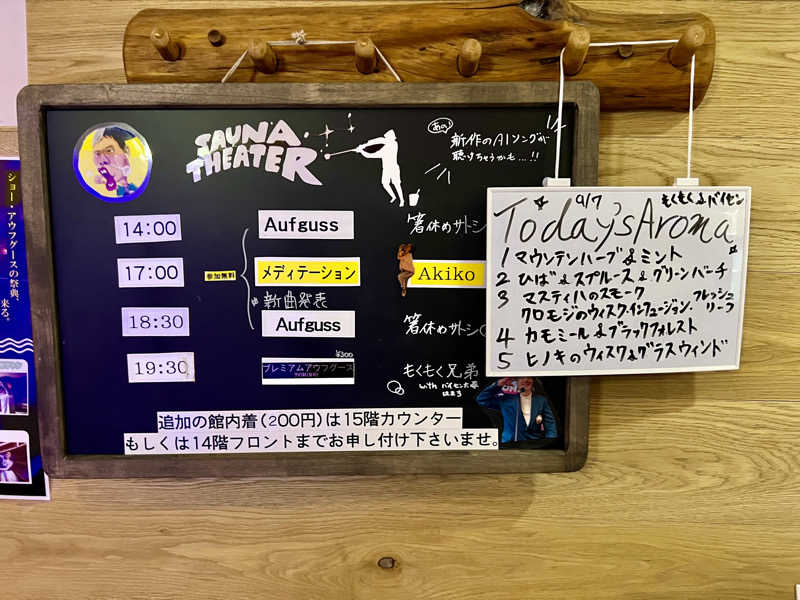 ショー・アウフグースの祭典、
来る。
SAUNA
THEATER
あの
新作のAIソングが
聴けちゃうかも...!!
14:00 Aufguss 箸休めサトシ
17:00 参加無料 メディテーション Akiko
新曲発表
18:30 Aufguss 箸休めサトシ
¥300
19:30 プレミアムアウフグース もくもく兄弟
with バイセン
追加の館内着(200円)は15階カウンター
もしくは14階フロントまでお申し付け下さいませ。
9/7 もくもく&バイセン
Today's Aroma
1 マウンテンハーブ&ミント
2 ひば&スプルース&グリーンバーチ
3 マスティハのスモーク フレッシュ
クロモジのウィスクインフュージョン. リーフ
4 カモミール&ブラックフォレスト
5 ヒノキのウィスク&グラスウィンド